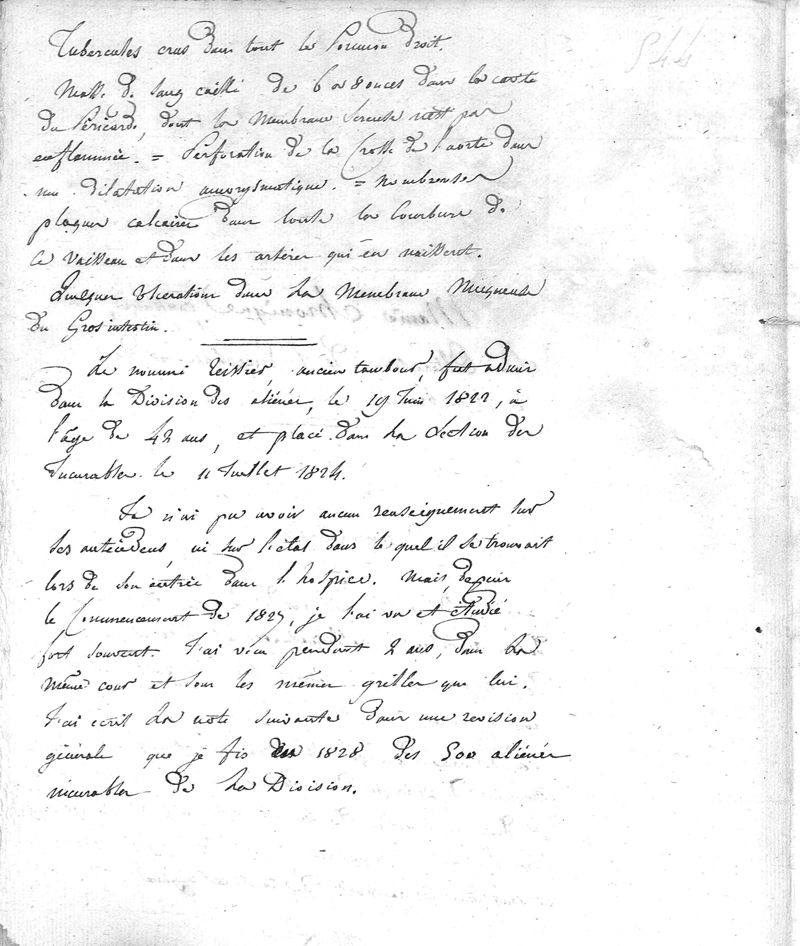 544
Tubercules crus dans tout le Poumon droit.
Mass. de sang caillé de 6 or 8 onces dans la cavité
du Péricarde, dont la Membrane sereuse n'est pas
enflammée. = Perforation de la Crosse de l'aorte dans
une dilatation anevrysmatique. = nombreuses
plaques calcaires dans toute la Courbure de
ce vaisseau et dans les artères qui en naissent.
Quelques Ulcerations dans la Membrane Muqueuse
du Gros intestin.
Le nommé teissier, ancien tambour, fut admis
dans la Division des aliénés, le 19 Juin 1822, à
l'âge de 42 ans, et placé dans la Section des
Incurables le 11 Juillet 1824.
Je n'ai pu avoir aucun renseignement sur
ses antécédens, ni sur l'etat dans le quel il se trouvait
lors de son entrée dans l'hospice. Mais, depuis
le Commencement de 1827, je l'ai vu et étudié
fort souvent. J'ai vécu pendant 2 ans, dans la
même cour et sous les mêmes grilles que lui.
J'ai ecrit la note suivante dans une revision
générale que je fis en 1828 des 500 aliénés
incurables de la Division.